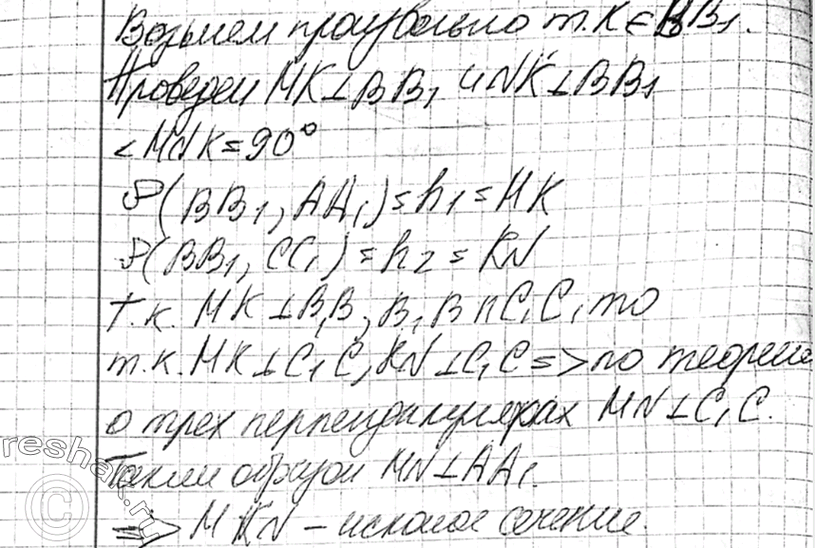 Возьмем произвольно т. K ∈ BB₁.
Проведем MK ⊥ BB₁ и NK ⊥ BB₁
∠MNK = 90°
ρ(BB₁, AA₁) = h₁ = MK
ρ(BB₁, CC₁) = h₂ = KN
т.к. MK ⊥ B₁B, B₁B ∩ C₁C, то
т.к. MK ⊥ C₁C, KN ⊥ C₁C => по теореме
о трех перпендикулярах MN ⊥ C₁C.
Таким образом MN ⊥ AA₁.
=> MKN – искомое сечение.
© reshak.ru